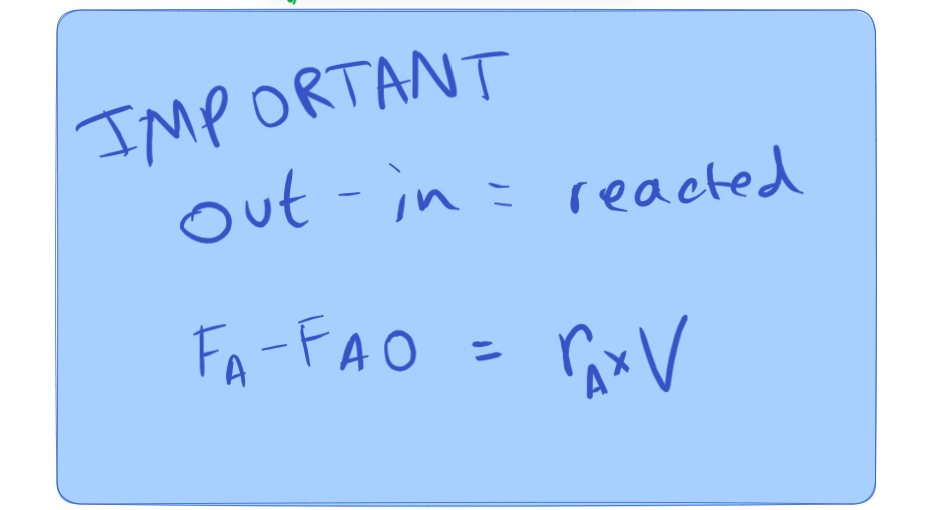 IMPORTANT
out - in = reacted
FA - FAO = rA x V